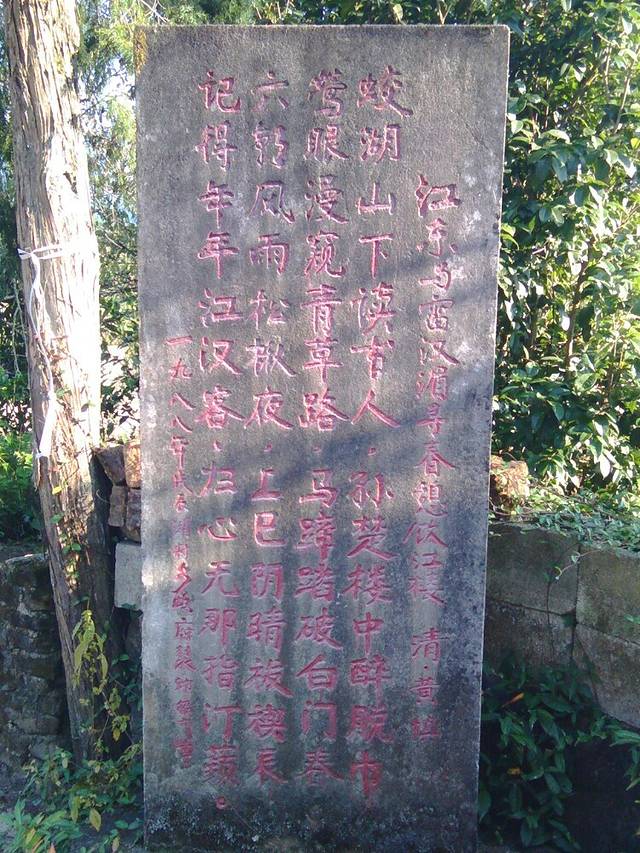 江东与雷汉湄寻春憩饮江楼 清·黄慎
蛟湖山下读书人，孙楚楼中醉脱巾
莺眼漫窥青草路，马蹄踏破白门春
六朝风雨松楸夜，上巳阴晴祓禊辰
记得年年江汉客，归心无那指汀蘋。
一九八八年戊辰湖村乡政府